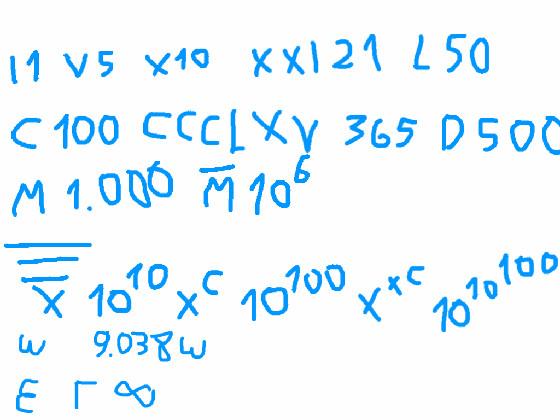 I1 V5 X10 XXI21 L50
C100 CCCLXV 365 D500
M 1.000 M̅ 10⁶
X̿̅ 10¹⁰ Xᶜ 10¹⁰⁰ X^X^C 10^10^100
ω 9.038ω
E Γ ∞